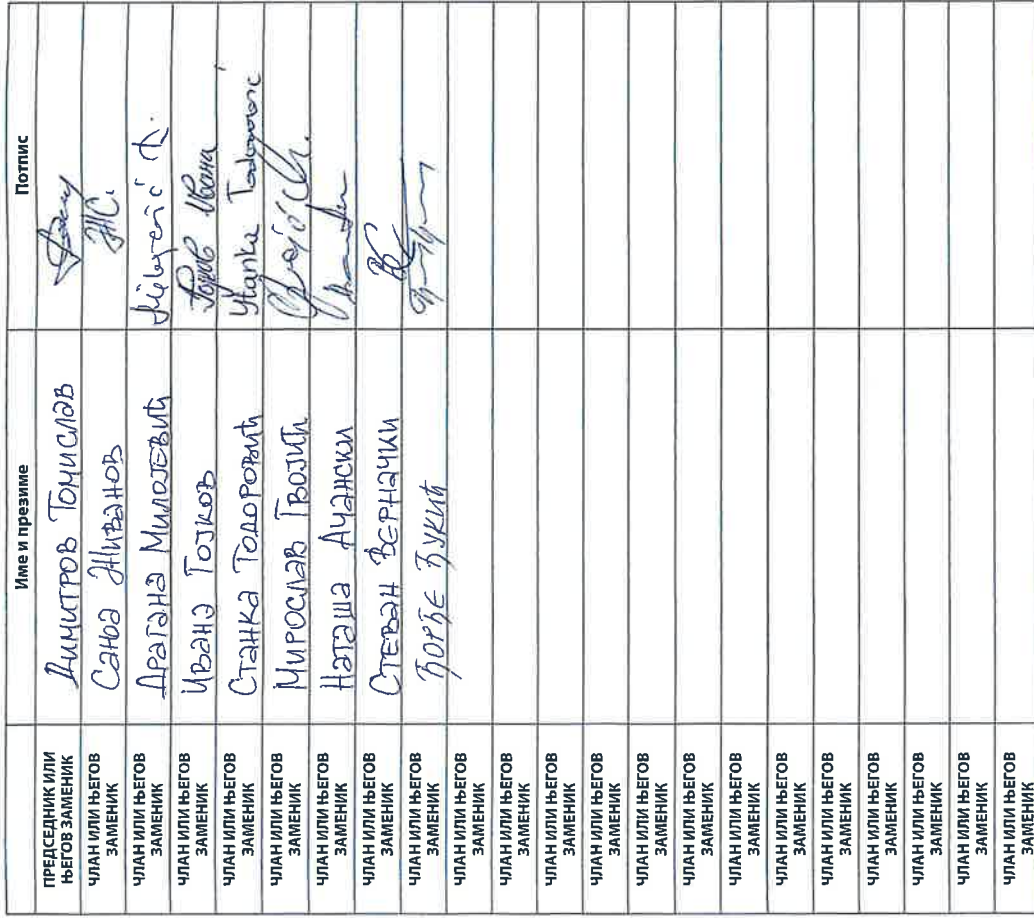 Име и презиме Потпис
ПРЕДСЕДНИК ИЛИ
ЊЕГОВ ЗАМЕНИК
Димитров Томислав
ЧЛАН ИЛИ ЊЕГОВ
ЗАМЕНИК
Живанов
ЖС.
ЧЛАН ИЛИ ЊЕГОВ
ЗАМЕНИК
Драгана Милојевић
ЧЛАН ИЛИ ЊЕГОВ
ЗАМЕНИК
Ивана Гојков
Гојков Ивана
ЧЛАН ИЛИ ЊЕГОВ
ЗАМЕНИК
Станка Тодоровић
Stanka Todorović
ЧЛАН ИЛИ ЊЕГОВ
ЗАМЕНИК
Мирослав Гвојић
ЧЛАН ИЛИ ЊЕГОВ
ЗАМЕНИК
Наташа Ачански
ЧЛАН ИЛИ ЊЕГОВ
ЗАМЕНИК
Стеван Верначки
ЧЛАН ИЛИ ЊЕГОВ
ЗАМЕНИК
Ђорђе Ђукић
ЧЛАН ИЛИ ЊЕГОВ
ЗАМЕНИК
ЧЛАН ИЛИ ЊЕГОВ
ЗАМЕНИК
ЧЛАН ИЛИ ЊЕГОВ
ЗАМЕНИК
ЧЛАН ИЛИ ЊЕГОВ
ЗАМЕНИК
ЧЛАН ИЛИ ЊЕГОВ
ЗАМЕНИК
ЧЛАН ИЛИ ЊЕГОВ
ЗАМЕНИК
ЧЛАН ИЛИ ЊЕГОВ
ЗАМЕНИК
ЧЛАН ИЛИ ЊЕГОВ
ЗАМЕНИК
ЧЛАН ИЛИ ЊЕГОВ
ЗАМЕНИК
ЧЛАН ИЛИ ЊЕГОВ
ЗАМЕНИК
ЧЛАН ИЛИ ЊЕГОВ
ЗАМЕНИК
ЧЛАН ИЛИ ЊЕГОВ
ЗАМЕНИК
ЧЛАН ИЛИ ЊЕГОВ
ЗАМЕНИК